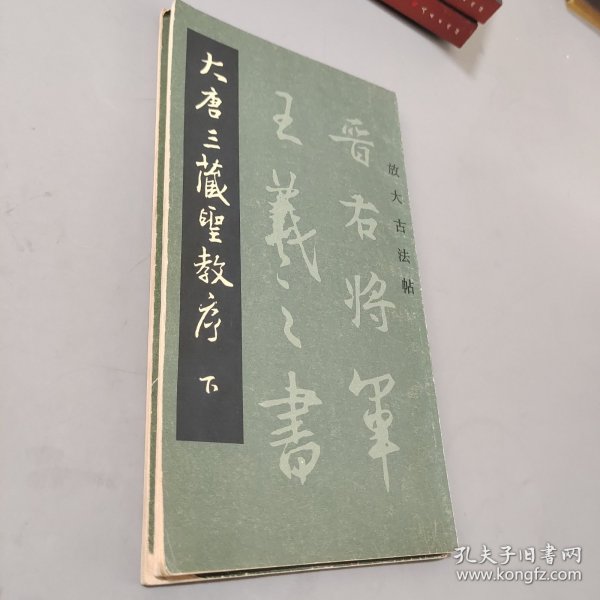 放大古法帖
晋右将軍
王羲之書
大唐三藏聖教序 下
孔夫子旧書网
www.kongfz.com